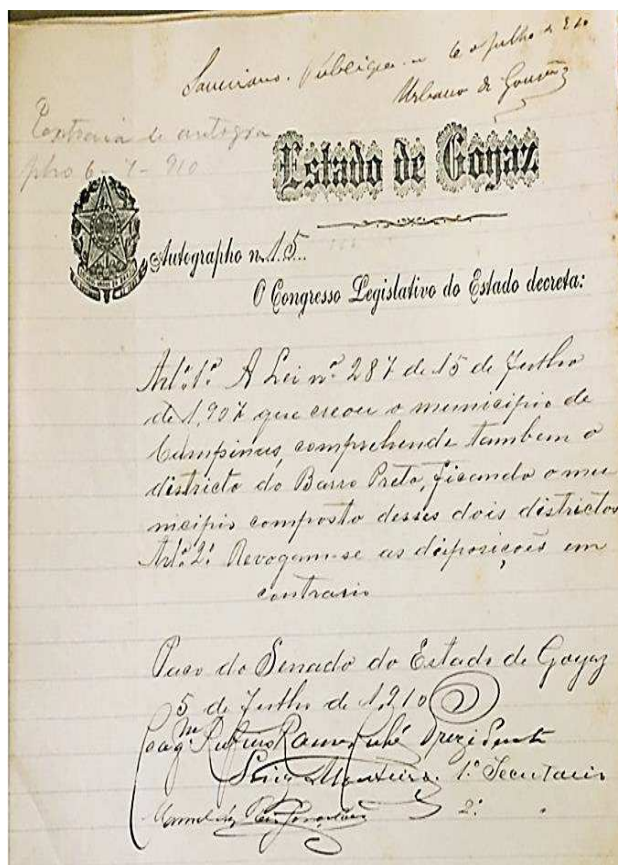 Sancciono. Publique-se 6 de Julho de 910
Urbano de Gouvêa
de autogra
pho 6-7-910
Estado de Goyaz
Autographo n. 15
O Congresso Legislativo do Estado decreta:
Art.º 1.º A Lei nº 287 de 15 de Julho
de 1,907 que creou o municipio de
Campinas, comprehende tambem o
districto do Barro Preto, ficando o mu
nicipio composto desses dois districtos
Art.º 2.º Revogam-se as disposições em
contrario
Paço do Senado do Estado de Goyaz
5 de Julho de 1,910
Joaq.m Rufino Ramos Jubé Prezidente
1.º Secretario
2.º "